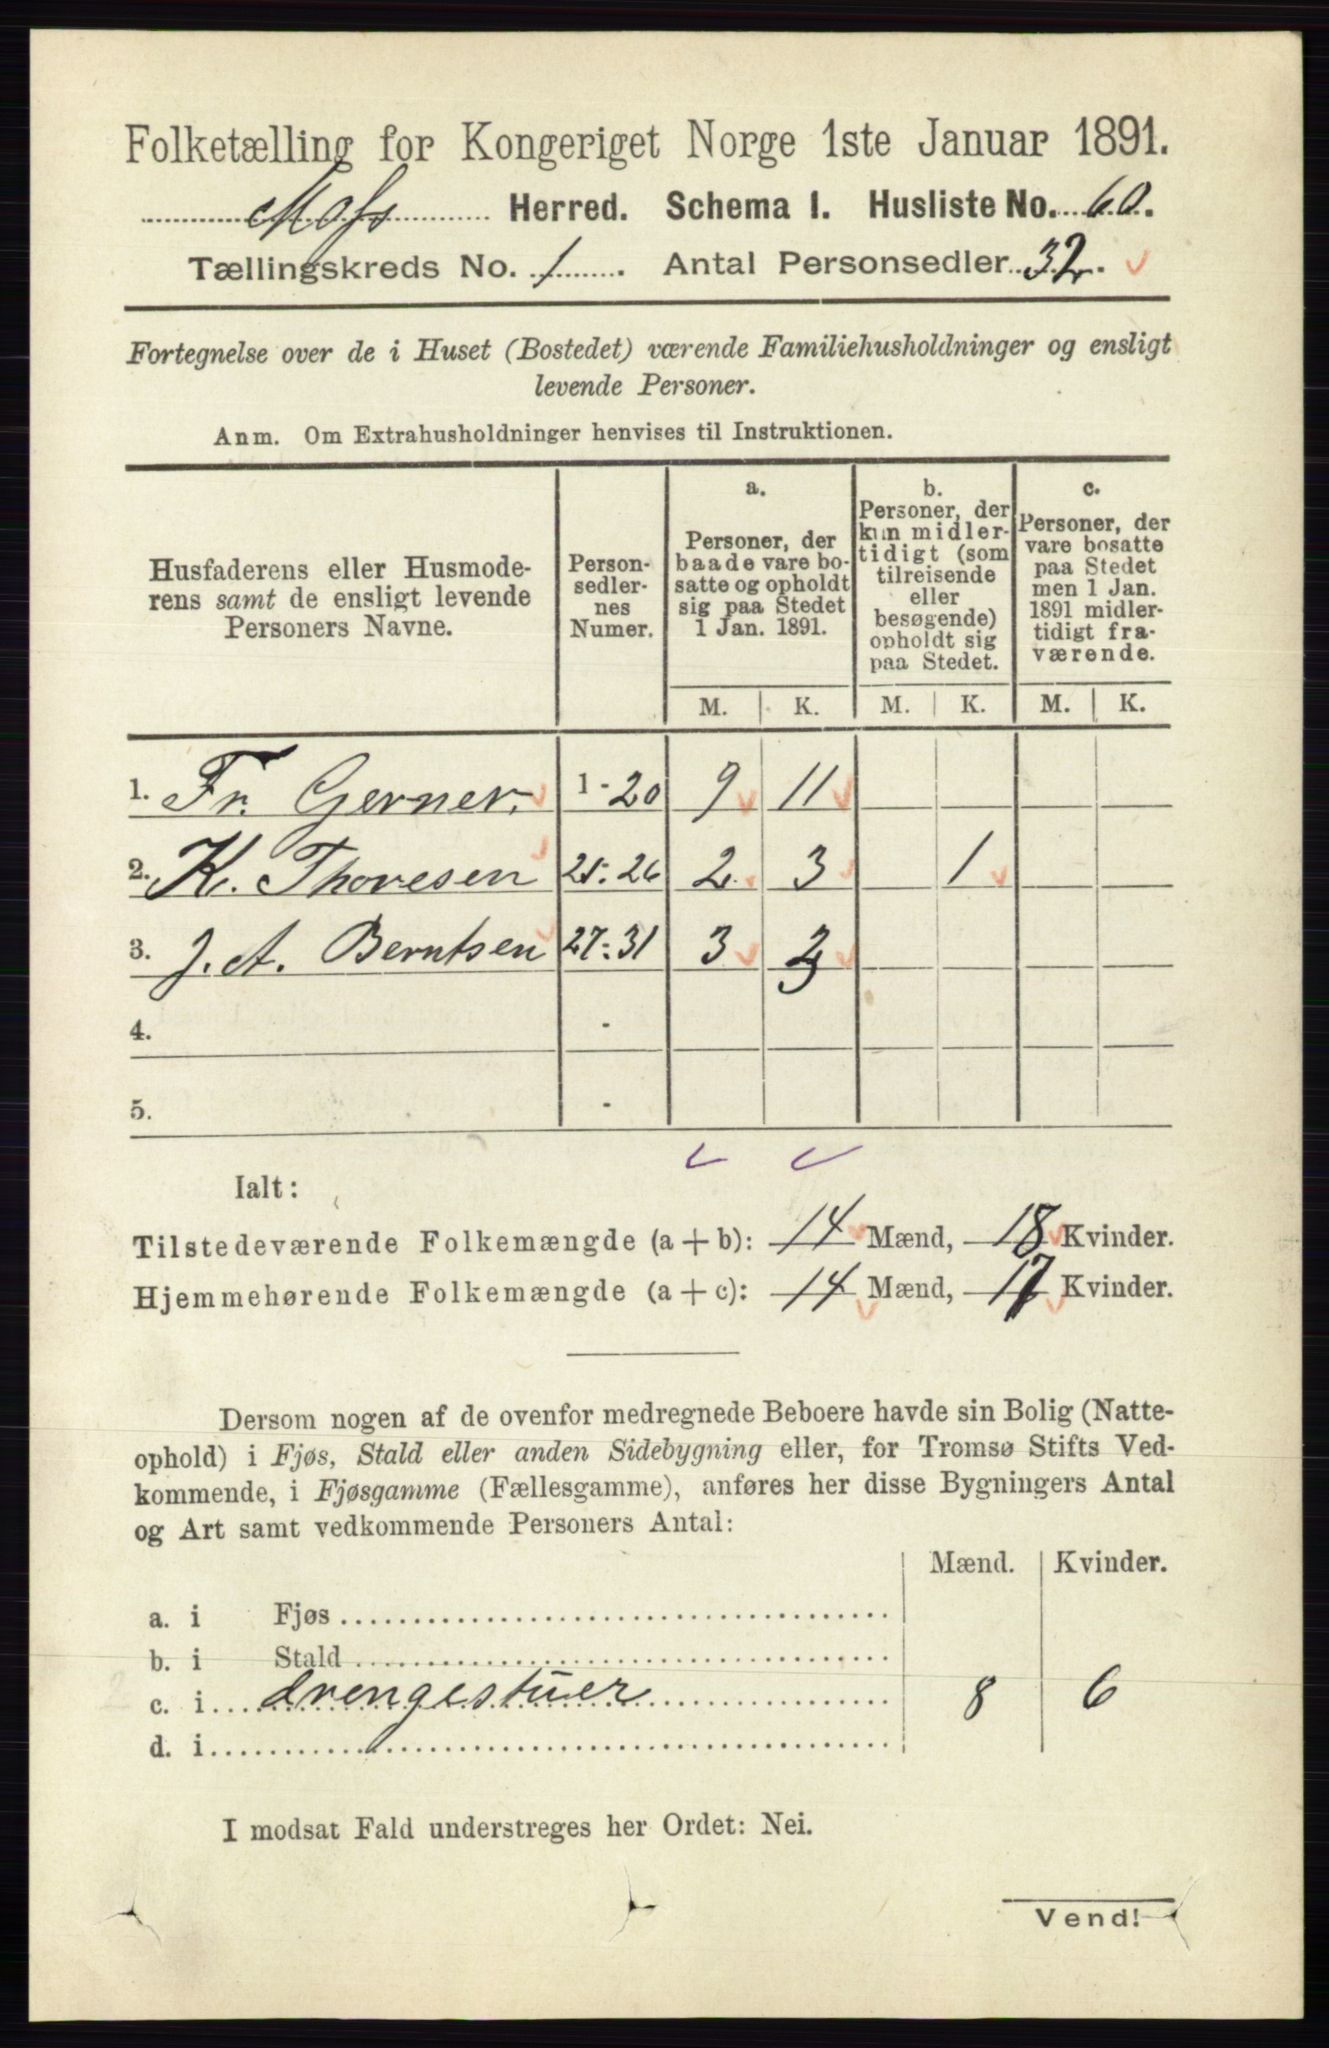 Folketælling for Kongeriget Norge 1ste Januar 1891.
Moss Herred. Schema I. Husliste No. 60.
Tællingskreds No. 1. Antal Personsedler 32.
Fortegnelse over de i Huset (Bostedet) værende Familiehusholdninger og ensligt
levende Personer.
Anm. Om Extrahusholdninger henvises til Instruktionen.
Husfaderens eller Husmode-
rens samt de ensligt levende
Personers Navne.
Person-
sedler-
nes
Numer.
a.
Personer, der
baade vare bo-
satte og opholdt
sig paa Stedet
1 Jan. 1891.
b.
Personer, der
kun midler-
tidigt (som
tilreisende
eller
besøgende)
opholdt sig
paa Stedet.
c.
Personer, der
vare bosatte
paa Stedet
men 1 Jan.
1891 midler-
tidigt fra-
værende.
M. K. M. K. M. K.
1. Fr. Gerner. 1-20 9 11
2. K. Thoresen 21-26 2 3 1
3. J. A. Berntsen 27-31 3 3
4. -
5. -
Ialt:
Tilstedeværende Folkemængde (a + b): 14 Mænd, 18 Kvinder.
Hjemmehørende Folkemængde (a + c): 14 Mænd, 17 Kvinder.
Dersom nogen af de ovenfor medregnede Beboere havde sin Bolig (Natte-
ophold) i Fjøs, Stald eller anden Sidebygning eller, for Tromsø Stifts Ved-
kommende, i Fjøsgamme (Fællesgamme), anføres her disse Bygningers Antal
og Art samt vedkommende Personers Antal:
Mænd. Kvinder.
a. i Fjøs
b. i Stald
c. i drengestuer 8 6
d. i
I modsat Fald understreges her Ordet: Nei.
Vend!